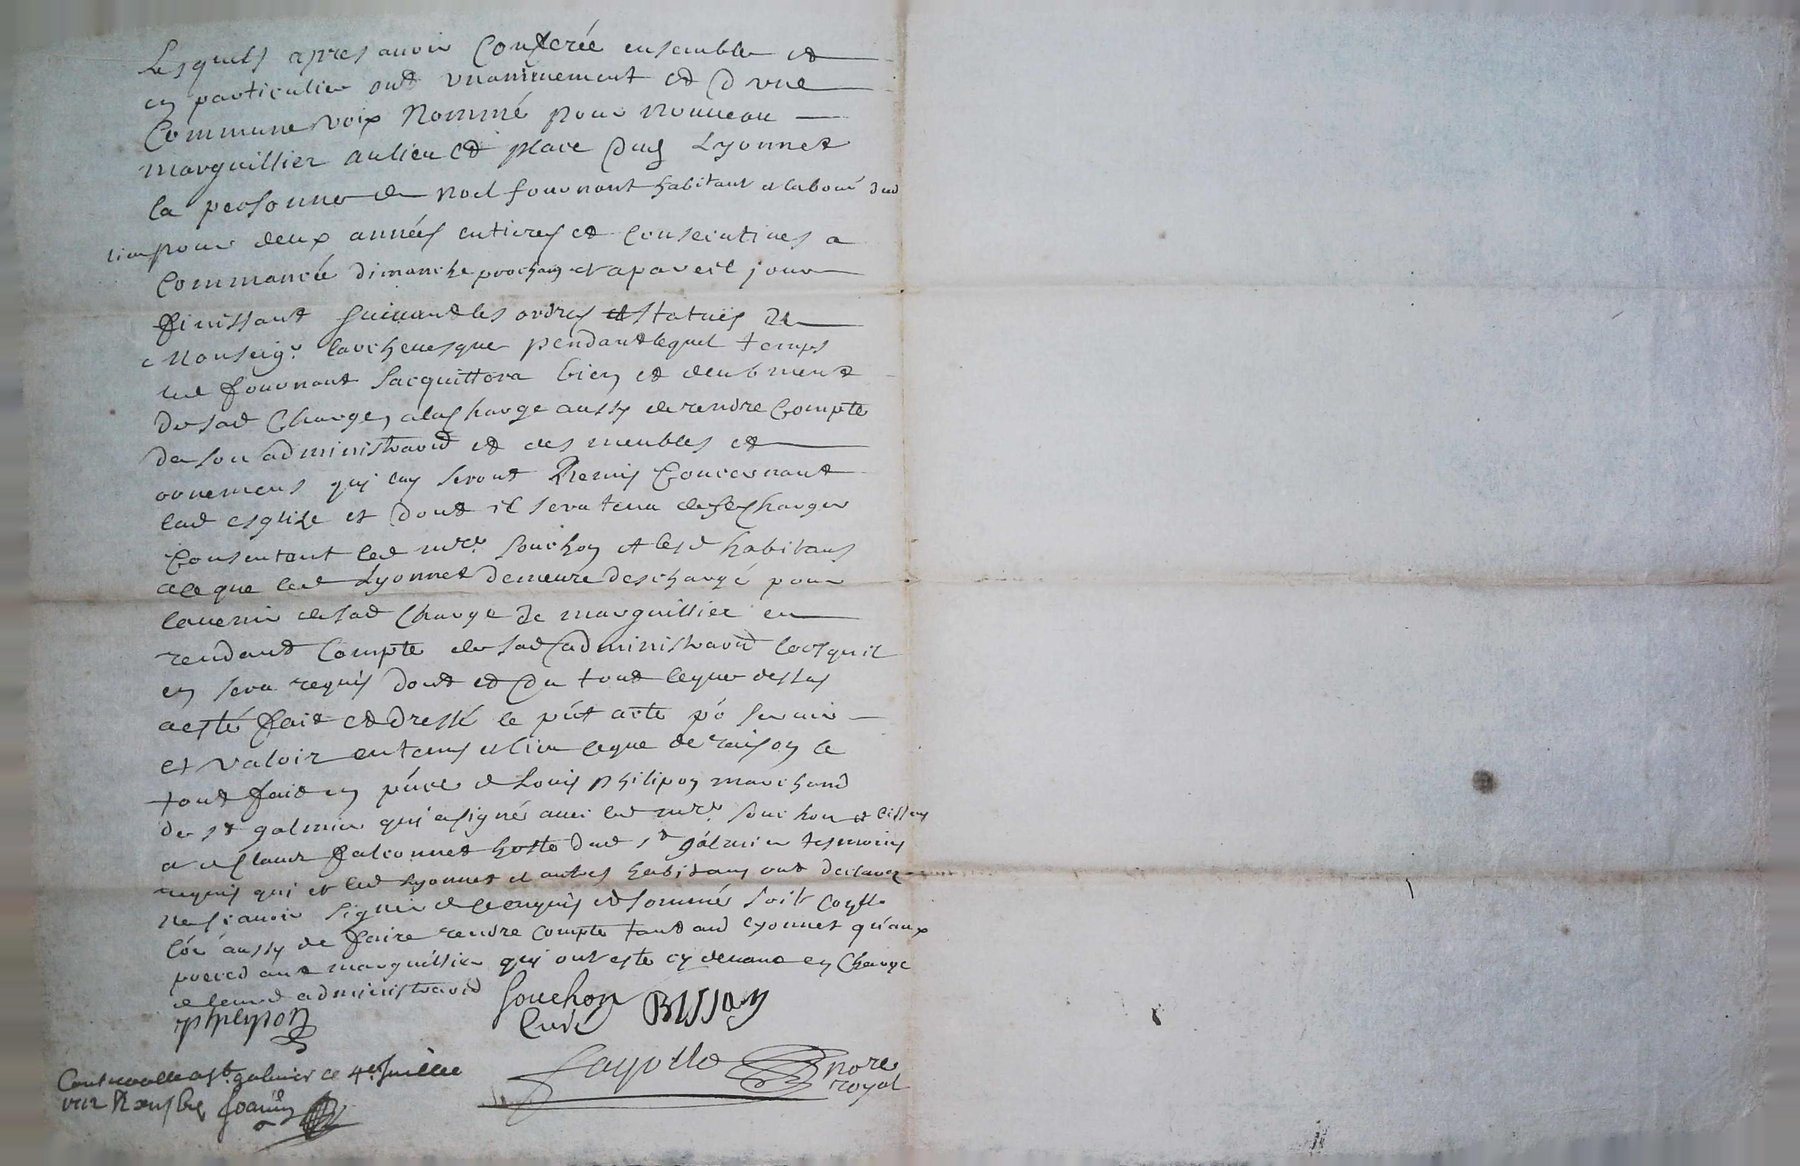 Lesquels apres avoir Conferée ensemble et
en particulier ont unanimement et d'vne
Commune voix Nommé pour nouveau
marguillier au lieu et place dud Lyonnet
la personne de noel fournont habitant a dud
lieu pour deux années entieres et consecutives a
Commancée dimanche prochain et a pareil jour
finissant suivant les ordres et statues de
Monseigr. larchevesque pendant lequel temps
led fournont sacquittera bien et deubment
de sad Charge, a la charge aussy de rendre Compte
de son administraon et des meubles et
ornemens qui luy seront Remis Concernant
lad esglize et dont il sera tenu de se Charger
Consentant led mre. Souchon et lesd habitans
a ce que led Lyonnet demeure deschargé pour
lavenir de sad Charge de marguillier en
rendant Compte de sad administraon lorsquil
en sera requis dont et du tout le que dessus
a esté fait et dressé le pnt acte po servir
et valoir en tems et lieu ce que de raison le
tout fait en pnce de Louis philipon marchand
de st galmier qui a signé avec led mre. Souchon et bissay
et de Claude falconnet hoste dud st galmier tesmoins
requis qui et led Lyonnet et autres habitans ont declaré
ne scavoir signer de ce enquis et sommé soit
aussy de faire rendre compte tant aud Lyonnet qu'aux
preced ant marguillier qui ont esté cy devant en Charge
de leurd administraon
phlypon Souchon Curé BISSAY
fayolle nore royal
Controollé a st. galmier ce 4e Juillet